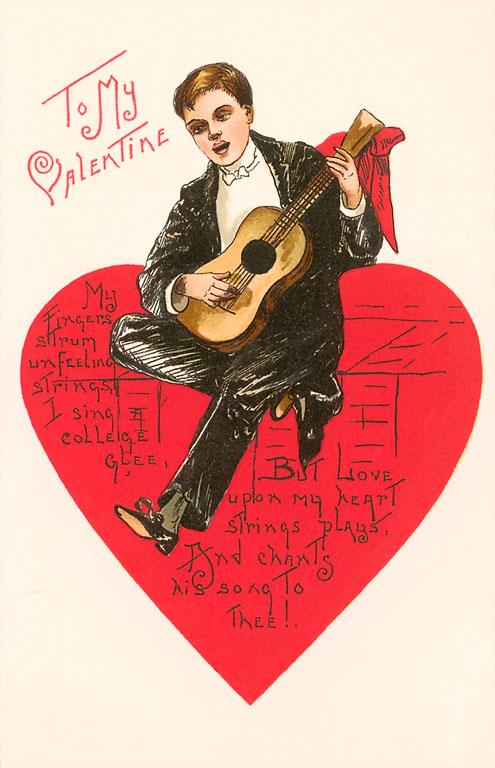 To My
Valentine
My
Fingers
strum
unfeeling
strings,
I sing
college
glee,
But Love
upon my heart
strings plays,
And chants
his song to
thee!.